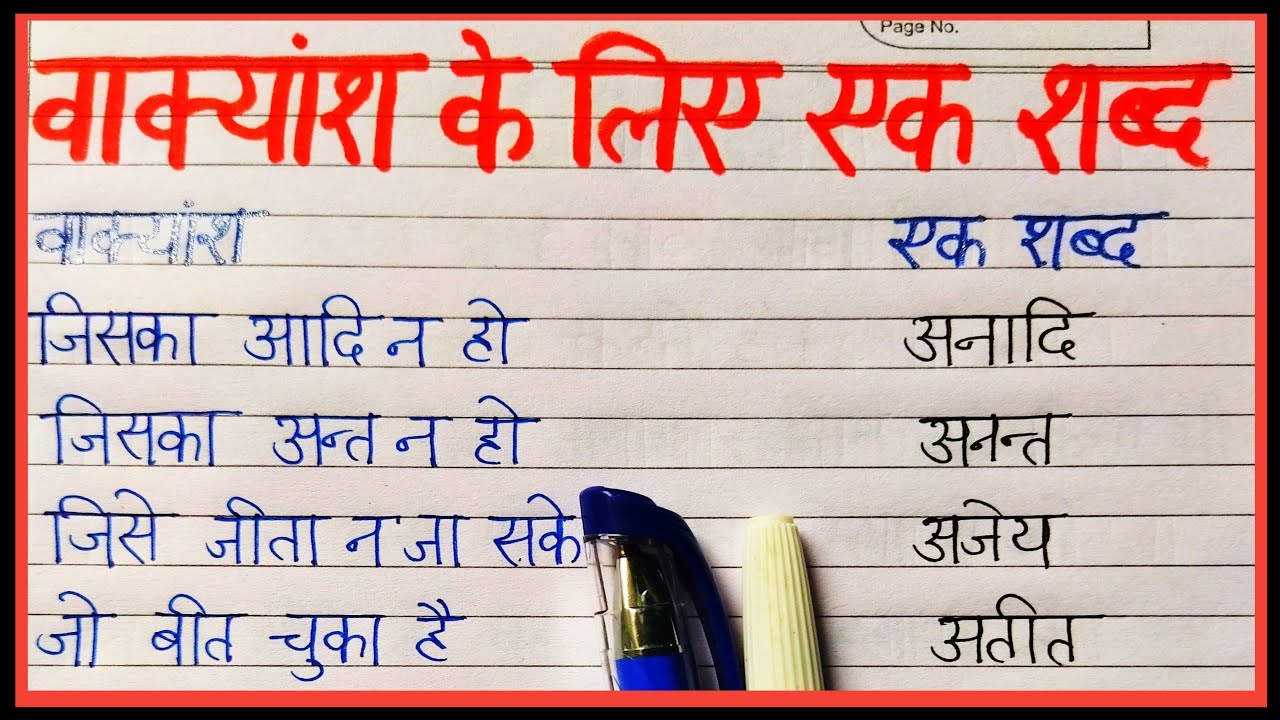 Page No.
वाक्यांश के लिए एक शब्द
वाक्यांश एक शब्द
जिसका आदि न हो अनादि
जिसका अन्त न हो अनन्त
जिसे जीता न जा सके अजेय
जो बीत चुका है अतीत